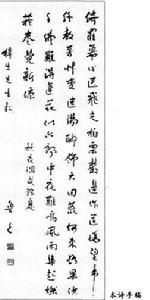 綺羅幕後送飛光柏栗叢邊作道場望帝
終教芳草變迷陽聊飾大田荒何來酪果供
千佛難得蓮花似六郎中夜雞鳴風雨集起然
菸卷覺新涼
梓生先生教
魯迅
本诗手稿